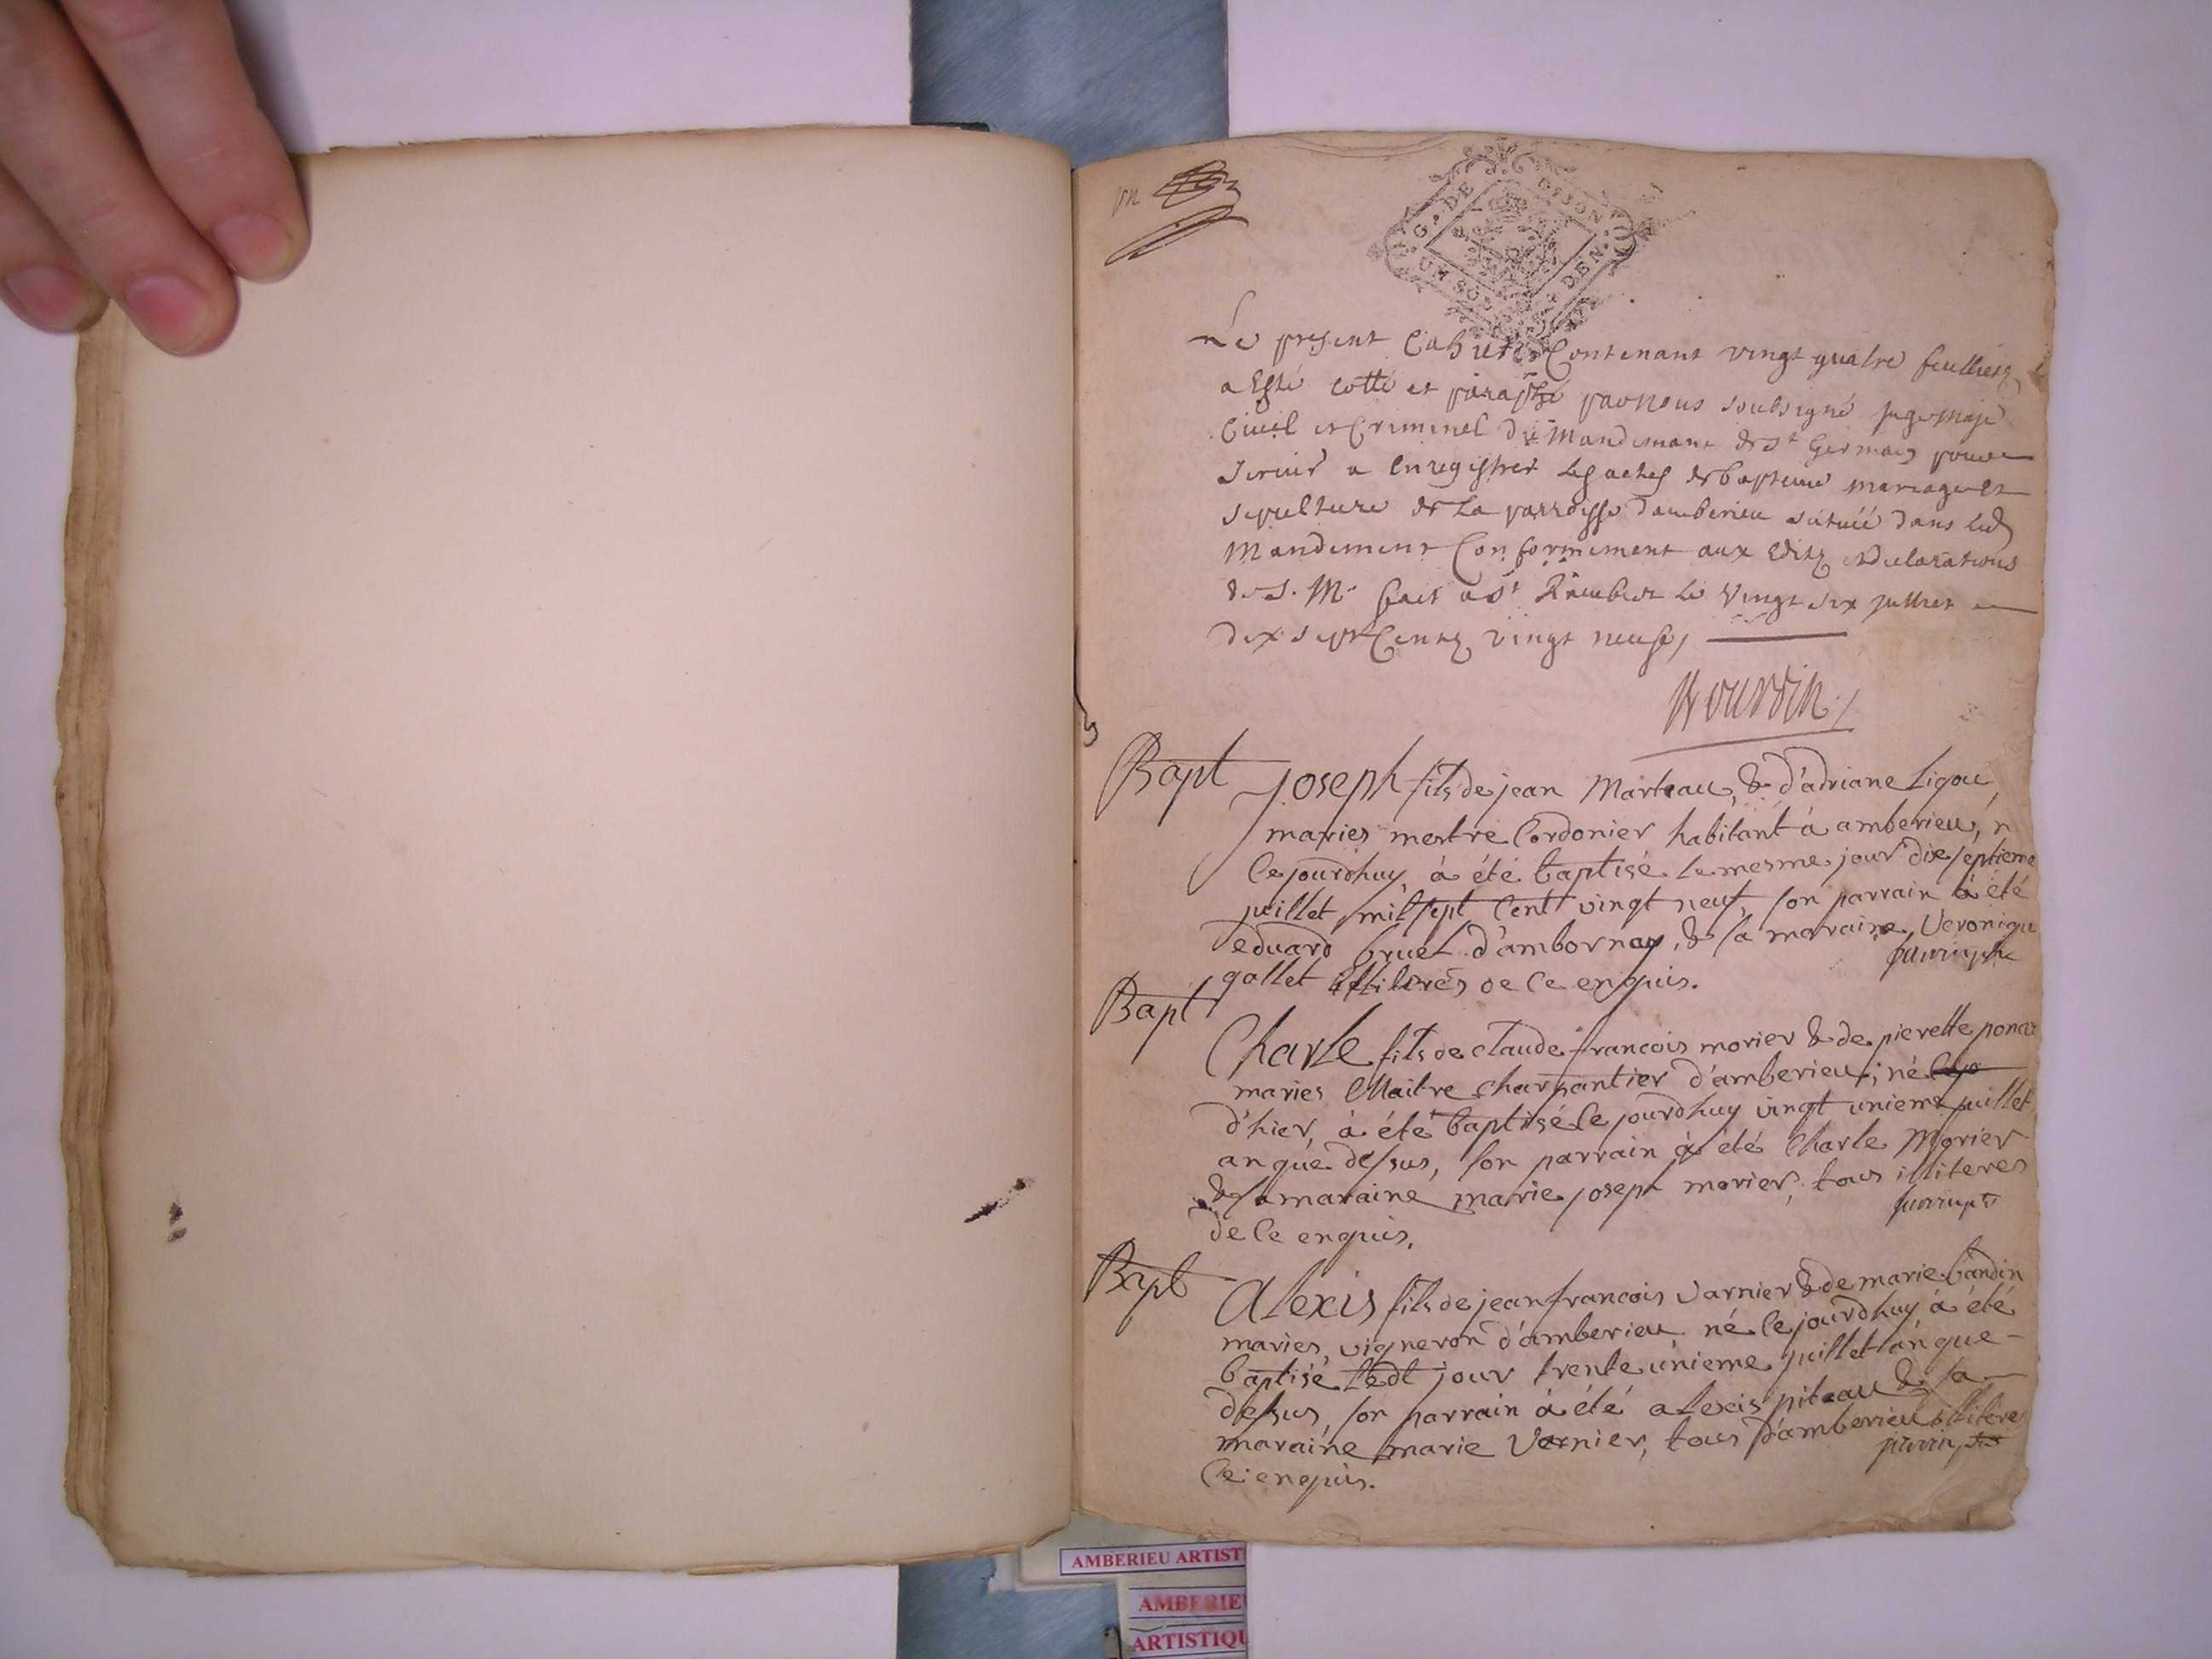 un
G. DE DIJON
UN SOL 4 DEN.
Le present Cahier Contenant vingt quatre feullietz
a esté cotté et paraphé par nous soubsigné juge maje
Civil et Criminel du Mandemant de St Germain pour
servir a Enregistrer les actes de bapteme mariage et
sepulture de La parroisse d'amberieu située dans led
Mandement Conformement aux Editz et declarations
de S. M. fait a St Rambert le vingt six juillet
dix sept Centz vingt neuf,
Bapt Joseph fils de jean Marteau, & d'adriane Ligou,
maries mestre Cordonier habitant à amberieu, n
Ce jourdhuy, à été baptisé le mesme jour dix septieme
juillet mil sept Cent vingt neuf, son parrain à été
eduard bruet d'ambornay, & sa maraine Veroniqu
gallet illiterés de Ce enquis.
Bapt Charle fils de claude francois morier & de pierette ponc
maries Maitre charpantier d'amberieu; né
d'hier, à été baptisé Ce jourdhuy vingt unieme juillet
an que dessus, son parrain à été Charle Morier
& sa maraine marie joseph morier, tous illiteres
de Ce enquis.
Bapt Alexis fils de jean francois Varnier & de marie bandin
maries, vigneron d'amberieu, né Ce jourdhuy à été
baptisé ledt jour trente unieme juillet an que
dessus, son parrain à été alexis piteau & sa
maraine marie Varnier, tous d'amberieu illitere
Ce enquis.
AMBERIEU ARTIST
AMBERIE
ARTISTIQU